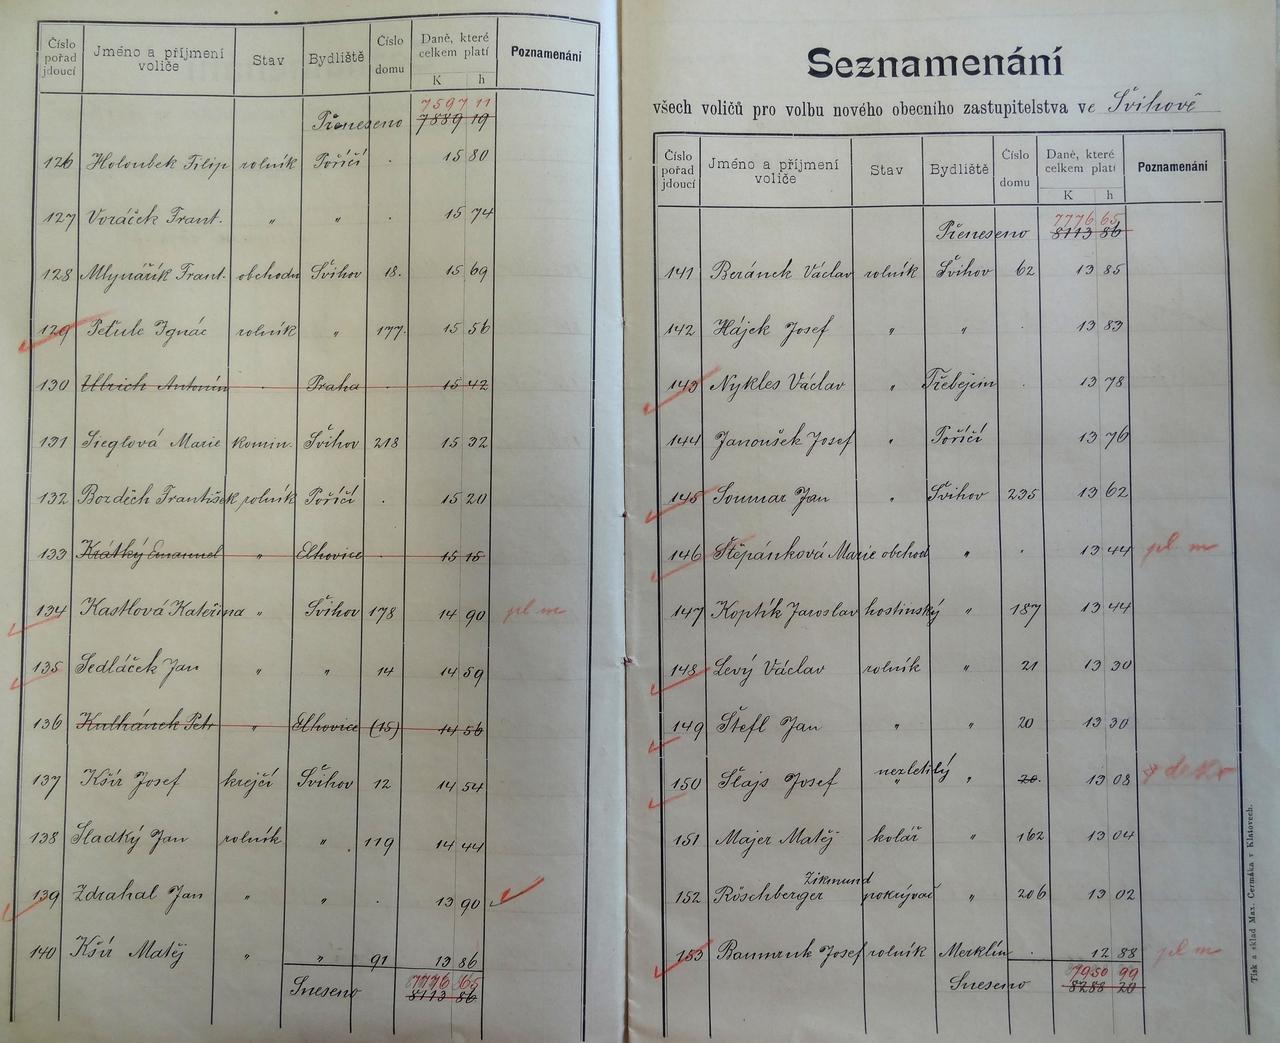 Číslo pořad jdoucí Jméno a příjmení voliče Stav Bydliště Číslo domu Daně, které celkem platí K h Poznamenání
7597 11
Přeneseno 7889 19
126 Holoubek Filip rolník Poříčí . 15 80
127 Voráček Frant. " " . 15 74
128 Mlynářík Frant. obchodn Švihov 18. 15 69
129 Peťule Ignác rolník " 177. 15 56
130 Ulrich Antonín . Praha . 15 42
131 Sieglová Marie komin. Švihov 218 15 32
132 Bozděch František rolník Poříčí . 15 20
133 Krátký Emanuel " Elhovice . 15 15
134 Kastlová Kateřina " Švihov 178 14 90 pl. m
135 Sedláček Jan " " 14 14 59
136 Kulhánek Petr " Elhovice (15) 14 56
137 Kšír Josef krejčí Švihov 12 14 54
138 Sladký Jan rolník " 119 14 44
139 Zdrahal Jan " " . 13 90
140 Kšír Matěj " " 91 13 86
7776 65
Sneseno 8113 86
Seznamenání
všech voličů pro volbu nového obecního zastupitelstva ve Švihově
Číslo pořad jdoucí Jméno a příjmení voliče Stav Bydliště Číslo domu Daně, které celkem platí K h Poznamenání
7776 65
Přeneseno 8113 86
141 Beránek Václav rolník Švihov 62 13 85
142 Hájek Josef " " . 13 83
143 Nykles Václav " Třebejcín . 13 78
144 Janoušek Josef " Poříčí 13 76
145 Soumar Jan " Švihov 235 13 62
146 Štěpánková Marie obchod " . 13 44 pl. m
147 Koptík Jaroslav hostinský " 187 13 44
148 Levý Václav rolník " 21 13 30
149 Štefl Jan " " 20 13 30
150 Šlajs Josef nezletilý " " 20. 13 08
151 Majer Matěj kolář " 162 13 04
152 Röschberger Zikmund pokrývač " 206 13 02
153 Baumruk Josef rolník Merklín . 12 88 pl. m
7950 99
Sneseno 8288 20
Tisk a sklad Max. Čermáka v Klatovech.